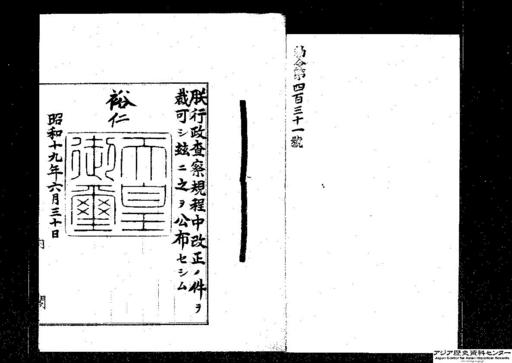 勅令第四百三十一號
朕行政査察規程中改正ノ件ヲ
裁可シ玆ニ之ヲ公布セシム
裕仁
天皇
御璽
昭和十九年六月三十日
内
閣
アジア歴史資料センター
Japan Center for Asian Historical Records